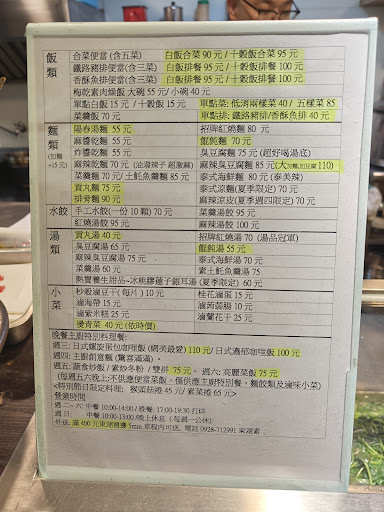 飯類
合菜便當 (含五菜) 白飯合菜 90 元 / 十穀飯合菜 95 元
鐵路豬排便當(含三菜) 白飯排餐 95 元 / 十穀飯排餐 100 元
香酥魚排便當(含三菜) 白飯排餐 95 元 / 十穀飯排餐 100 元
梅乾素肉燥飯 大碗 55 元/ 小碗 40 元
單點白飯 15 元 / 十穀飯 15 元 單點菜: 低消兩樣菜 40 / 五樣菜 85
菜羹飯 70 元 單點排: 鐵路豬排/香酥魚排 40 元
麵類 (加麵+15 元)
陽春湯麵 55 元 招牌紅燒麵 80 元
麻醬乾麵 55 元 餛飩麵 70 元
炸醬乾麵 55 元 臭豆腐麵 75 元 (超好喝湯底)
麻辣乾麵 70 元 (油潑辣子 超激麻) 麻辣臭豆腐麵 85 元(大加麵加豆腐 110)
菜羹麵 70 元/ 土魠魚羹麵 85 元 泰式海鮮麵 80 元 (泰美辣)
貢丸麵 75 元 泰式涼麵(夏季限定) 70 元
排骨麵 90 元 麻辣涼皮(夏季週四限定) 70 元
水餃
手工水餃(一份 10 顆) 70 元 菜羹湯餃 95 元
紅燒湯餃 95 元 麻辣湯餃 100 元
湯類
貢丸湯 40 元 招牌紅燒湯 70 (湯品冠軍)
臭豆腐湯 65 元 餛飩湯 55 元
麻辣臭豆腐湯 75 元 泰式海鮮湯 70 元
菜羹湯 60 元 素土魠魚羹湯 75
熱賣養生甜品~冰桃膠蓮子銀耳湯 (夏季限定) 60 元
小菜
秒殺滷豆干(每片) 10 元 桂花滷蛋 15 元
滷海帶 15 元 滷蒟蒻腸 10 元
滷素米糕 25 元 滷蘭花干 25 元
燙青菜 40 元 (依時價)
晚餐主廚特別料理餐:
週三: 日式螺旋蛋包咖哩飯 (網美最愛) 110 元/ 日式濃郁咖哩飯 100 元
週四: 主廚創意麵 (驚喜滿滿) 。
週五: 蔬食炒飯 / 素炒冬粉 / 雙拼 75 元。 週六: 高麗菜飯 75 元
(每週五六晚上:不供應便當菜飯，僅供應主廚特別餐、麵餃類及滷味小菜)
<特別節日限定料理: 猴頭菇捲 45 元/ 素菜捲 65 元>
營業時間
週二 ~ 六: 中餐 10:00-14:00 / 晚餐: 17:00-19:30 打烊
週日: 中餐 10:00-13:00 /晚上休息 ( 每週一公休)
外送: 滿 400 元東湖週邊 5min 車程內可送。電話 0928-712991 東湖素